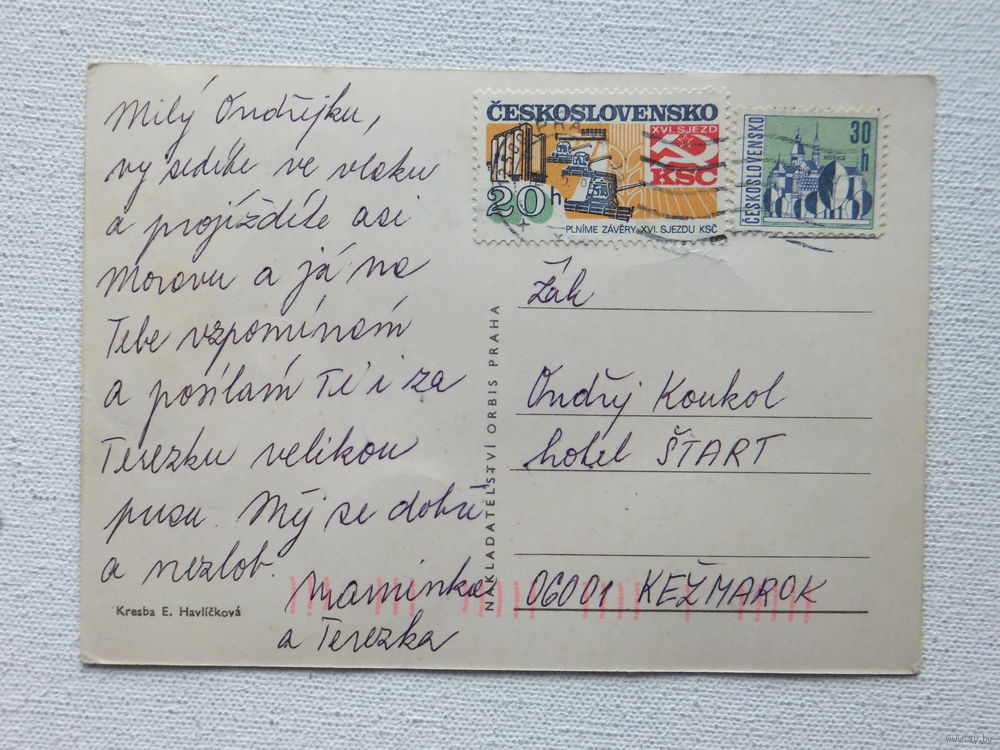 Milý Ondřejku,
vy sedíte ve vlaku
a projíždíte asi
Moravu a já na
Tebe vzpomínám
a posílám Ti i za
Terezku velikou
pusu. Měj se dobře
a nezlob.
Maminka
a Terezka
Kresba E. Havlíčková
NAKLADATELSTVÍ ORBIS PRAHA
ČESKOSLOVENSKO
XVI. SJEZD
KSČ
20h
PLNÍME ZÁVĚRY XVI. SJEZDU KSČ
ČESKOSLOVENSKO
30
h
Žák
Ondřej Koukol
hotel ŠTART
06001 KEŽMAROK
www.ay.by